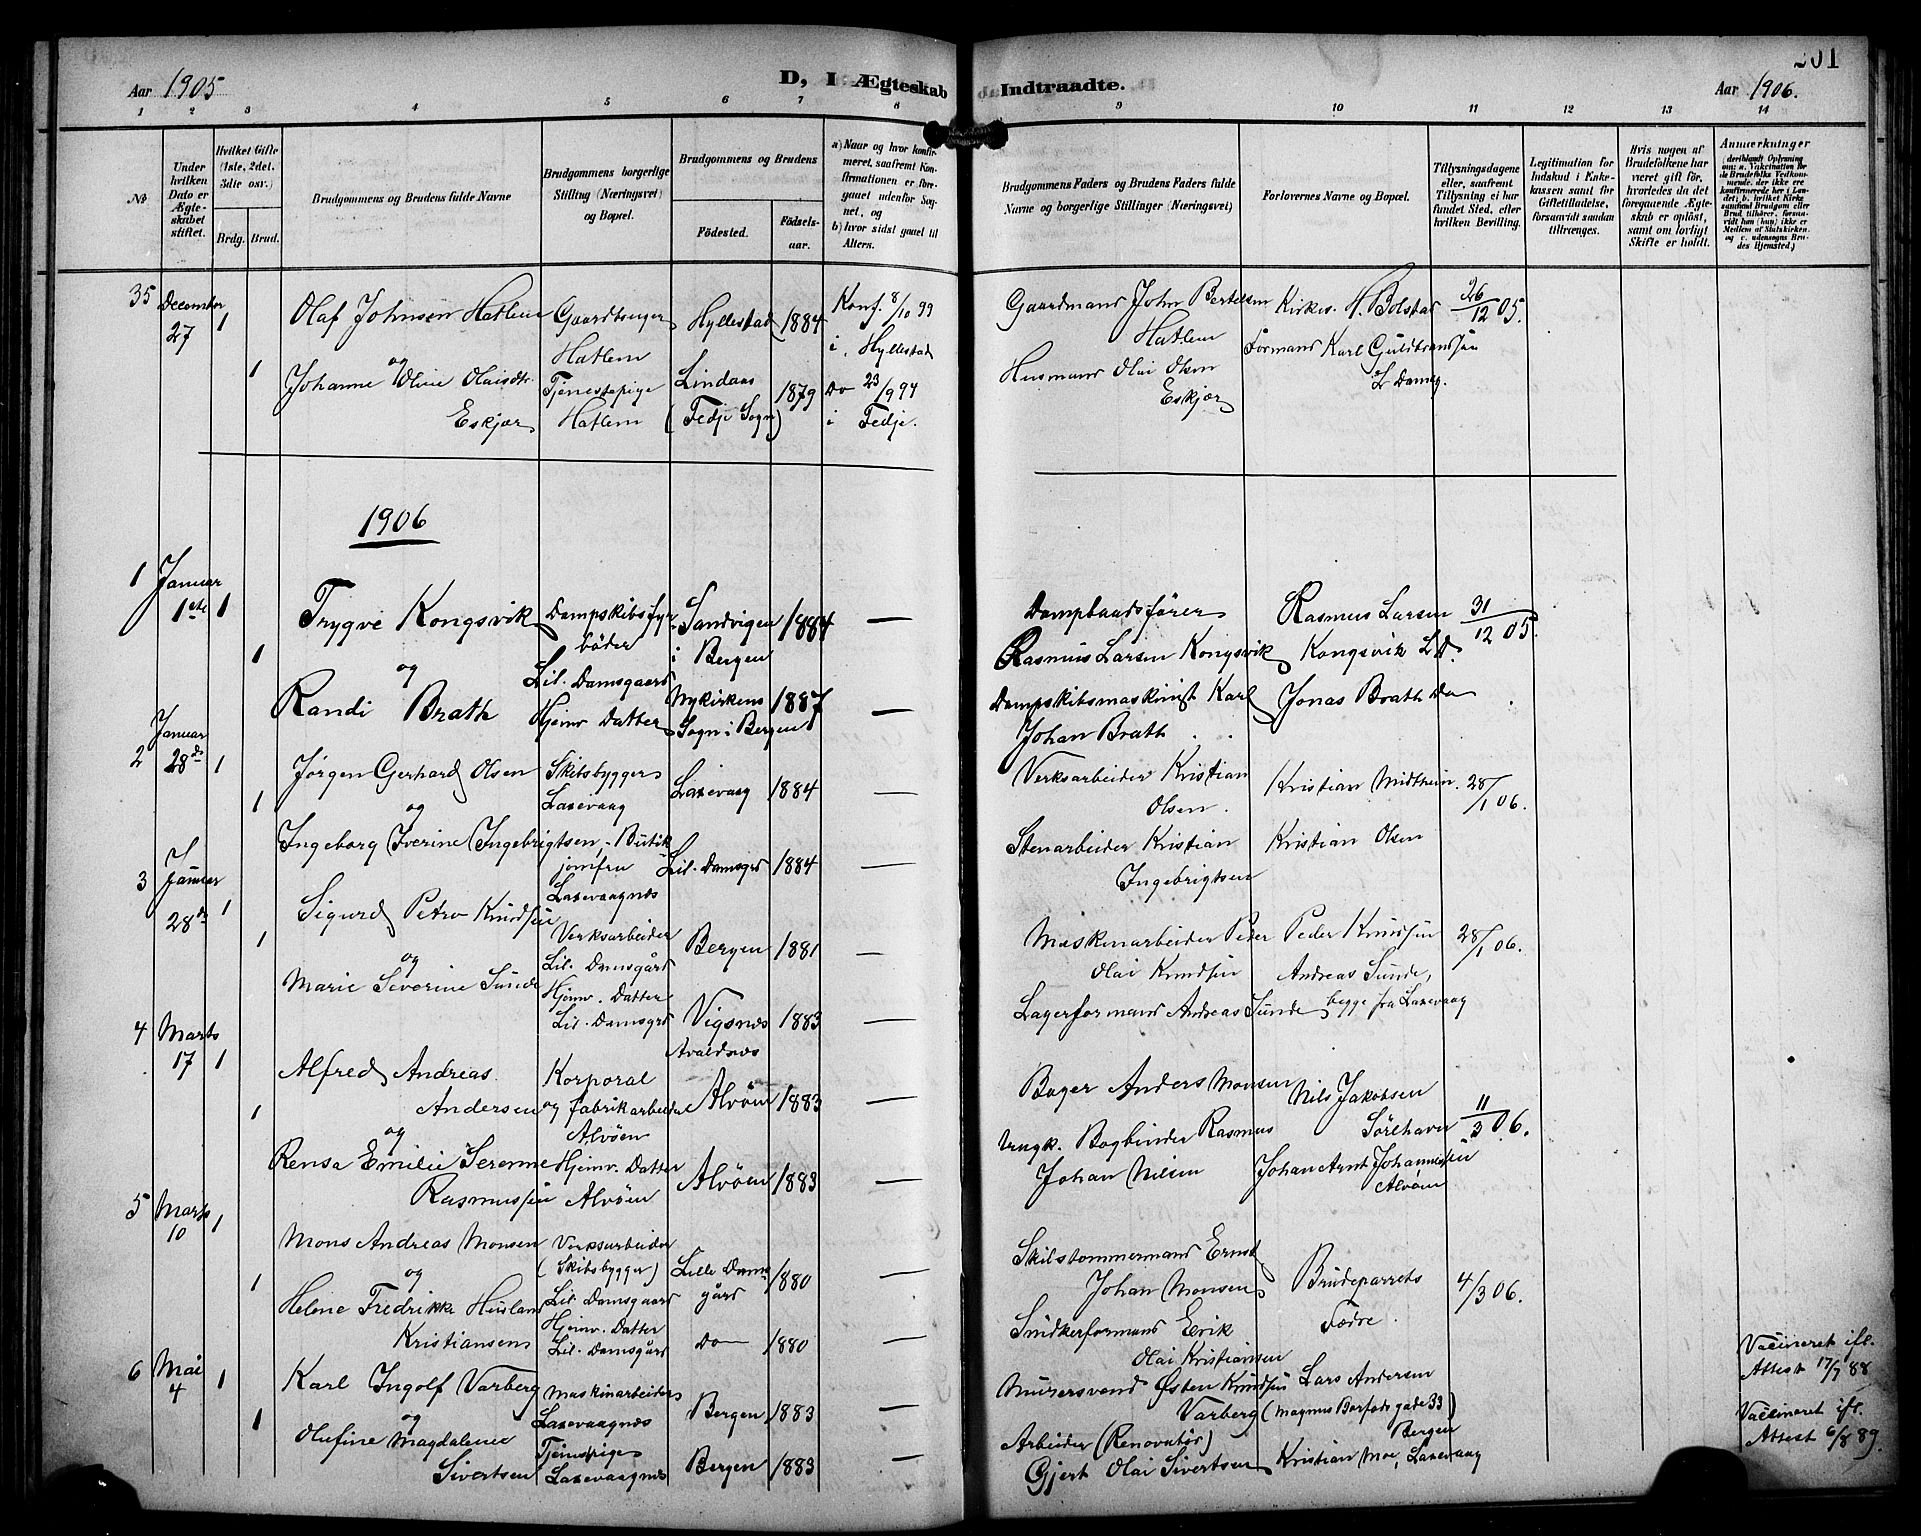 201
Aar 1905
D, I Ægteskab
Indtraadte.
Aar 1906.
1 2 3 4 5 6 7 8 9 10 11 12 13 14
No
Under hvilken Dato er Ægteskabet stiftet.
Hvilket Gifte (1ste, 2det, 3die osv.)
Brdg. Brud.
Brudgommens og Brudens fulde Navne
Brudgommens borgerlige Stilling (Næringsvei) og Bopæl.
Brudgommens og Brudens
Fødested.
Fødselsaar.
a) Naar og hvor konfirmeret, saafremt Konfirmationen er foregaaet udenfor Sognet, og
b) hvor sidst gaaet til Alters.
Brudgommens Faders og Brudens Faders fulde Navne og borgerlige Stillinger (Næringsvei)
Forlovernes Navne og Bopæl.
Tillysningsdagene eller, saafremt Tillysning ei har fundet Sted, efter hvilken Bevilling.
Legitimation for Indskud i Enkekassen samt for Giftetilladelse, forsaavidt saadan tiltrænges.
Hvis nogen af Brudefolkene har været gift før, hvorledes da det foregaaende Ægteskab er opløst, samt om lovligt Skifte er holdt.
Anmærkninger
35 December 27 1
Olaf Johnsen Hatlem Gaardbruger Hyllestad 1884 Konf. 8/10 99
Hatlem i Hyllestad
og
1 Johanne Olvie Olaisdtr. Tjenestepige Lindaas 1879 Do 23/9 94
Eskjær Hatlem (Fedje Sogn) i Fedje.
Gaardmand John Bertelsen Kirkes. H. Bolstad 26/12 05.
Hatlem Formand Karl Guldbrandsen
Husmand Olai Olsen L Damsg.
Eskjær
1906
1 Januar 1ste 1
Trygve Kongsvik Dampskibsfyrbøder Sandvigen 1884 —
1 og Lil. Damsgaard i Bergen
Randi Brath Hjemv Datter Nykirkens 1887 —
Sogn i Bergen
Dampbaadsfører Rasmus Larsen 31/12 05.
Rasmus Larsen Kongsvik Kongsvik L D.
Dampskibsmaskinist Karl Jonas Brath Do
Johan Brath
2 Januar 28de 1
Jørgen Gerhard Olsen Skibsbygger Laxevaag 1884 —
1 og Laxevaag
Ingeborg Iverine Ingebrigtsen, Butikjomfru Lil. Damsgrd 1884 —
Laxevaagnæs
Verksarbeider Kristian Kristian Midtheim. 28/1 06.
Olsen.
Stenarbeider Kristian Kristian Olsen
Ingebrigtsen
3 Januar 28de 1
Sigurd Petro Knudsen Verksarbeider Bergen 1881 —
1 og Lil. Damsgård
Marie Severine Sunde Hjemv. Datter Vigsnæs 1883 —
Lil. Damsgrd Avaldsnæs
Maskinarbeider Peder Peder Knudsen 28/1 06.
Olai Knudsen Andreas Sunde,
Lagerformand Andreas Sunde begge fra Laxevaag
4 Marts 17 1
Alfred Andreas Korporal
1 Andersen og fabrikarbeider Alvøen 1883 —
og Alvøen
Rensa Emilie Serenne Hjemv. Datter Alvøen 1883 —
Rasmussen Alvøen
Bager Anders Monsen Nils Jakobsen 11/3 06.
Ungk. Bogbinder Rasmus Sørehaven
Johan Nilsen Johan Arnt Johannesen
Alvøen
5 Marts 10 1
Mons Andreas Monsen Verksarbeider
1 og (Skibsbygger) Lille Damsgård 1880 —
Helene Fredrikke Husland Lil. Damsgaard
Kristiansen Hjemv. Datter Do 1880 —
Lil. Damsgård
Skibstømmermand Ernst
Johan Monsen Brudeparrets 4/3 06.
Snidkerformand Erik Fædre.
Olai Kristiansen
6 Mai 4 1
Karl Ingolf Varberg Maskinarbeider Bergen 1883 —
1 og Laxevaagnæs
Olufine Magdalene Tjenstpige
Sivertsen Laxevaagnæs Bergen 1883 —
Murersvend Østen Knudsen Lars Andersen
Varberg (Magnus Barfods gade 33)
Arbeider (Renovatør) Bergen
Gjert Olai Sivertsen Kristian Moe, Laxevaag
Vaccineret ifl.
Attest 17/7 88
Vaccineret ifl.
Attest 6/8 89.